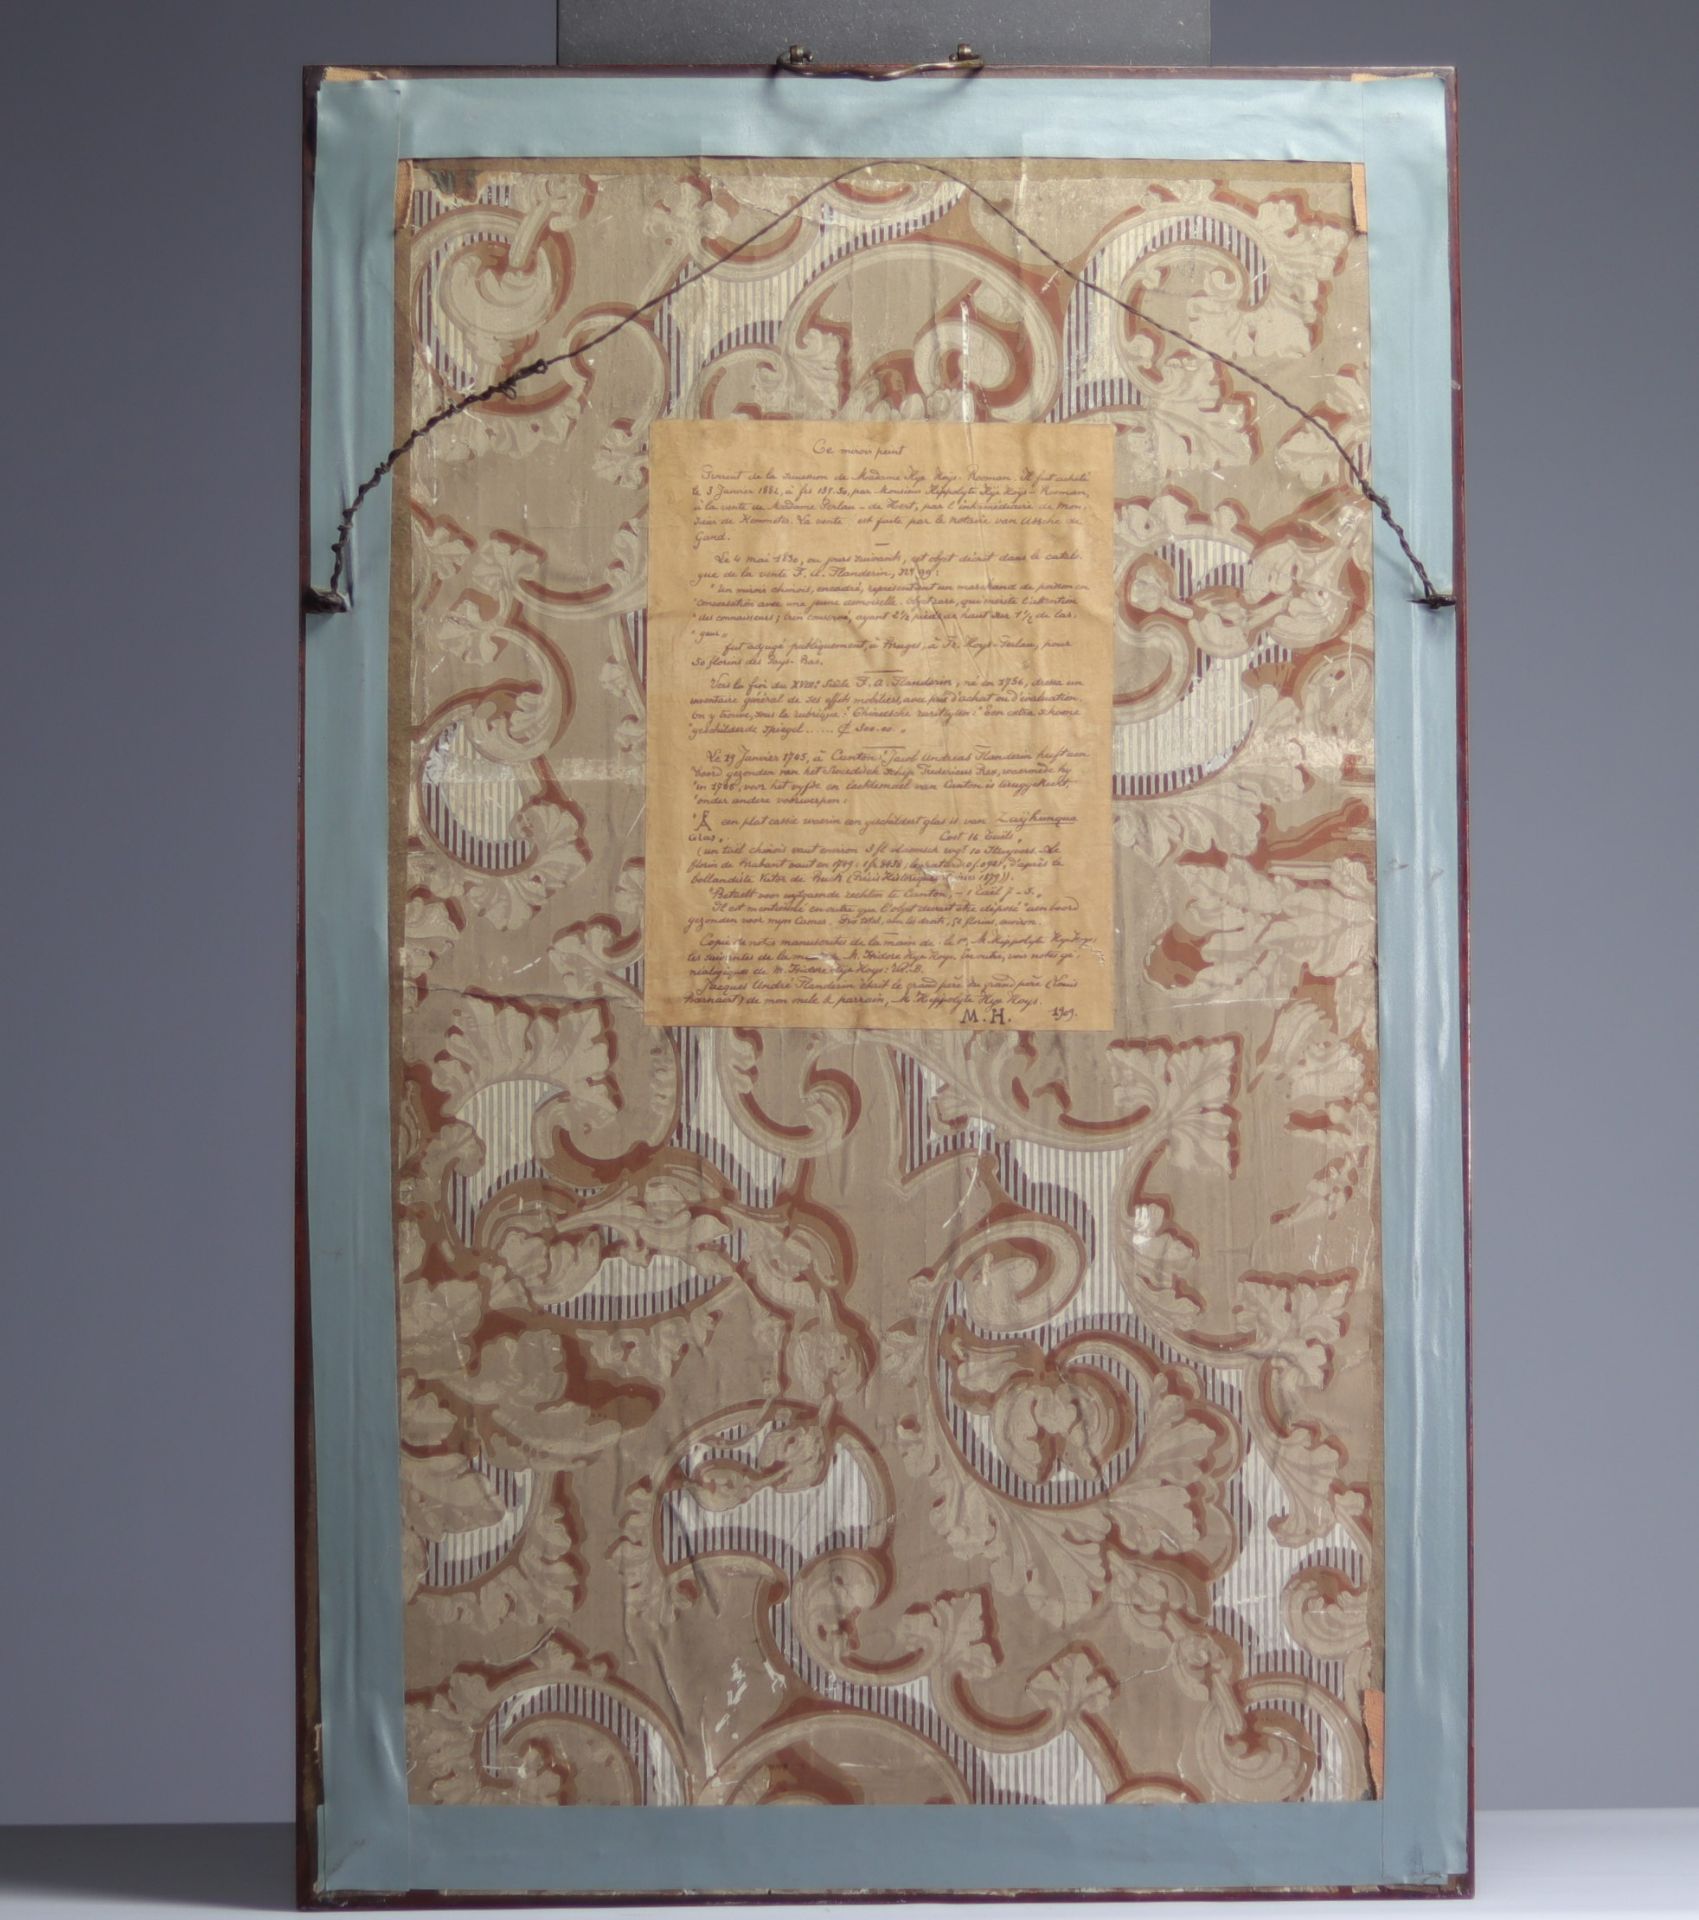 Ce miroir peint
Provient de la succession de Madame Hye Hoys-Rooman. Il fut acheté
le 3 Janvier 1882, à frs 137.50, par Monsieur Hippolyte Hye Hoys-Rooman,
à la vente de Madame Serlau-de Hert, par l'intermédiaire de Mon
sieur de Kemmeter. La vente est faite par le notaire van Assche de
Gand.
Le 4 mai 1830, ou jours suivants, cet objet décrit dans le catalo
gue de la vente F. A. Flanderin, N° 99:
"Un miroir chinois, encadré, représentant un marchand de poisson en
"conversation avec une jeune demoiselle. Objet rare, qui mérite l'attention
"des connaisseurs; bien conservé, ayant 2 1/2 pieds de haut sur 1 1/2 de lar-
"geur"
fut adjugé publiquement, à Bruges, à Fr. Hoys-Serlau, pour
50 florins des Pays-Bas.
Vers la fin du XVIIIe Siècle F. A. Flanderin, né en 1756, dressa un
inventaire général de ses effets mobiliers, avec prix d'achat ou d'évaluation.
On y trouve, sous la rubrique: "Chineesche rariteyten:" "Een extra schoone
"geschilderde spiegel .....
Le 29 Janvier 1765, à Canton "Jacob Andreas Flanderin heeft aen
"boord gezonden van het Sweedsch schip Fredericus Rex, waermede hy
"in 1766, voor het vyfde en lachtemael van Canton is teruggekeert,
"onder andere voorwerpen:
een plat cassie waerin een geschildert glas is van Zayhunqua
Glas". Cost 16 Taëls
(un taël chinois vaut environ 3 fl. vlaemsch wegt 10 Stuyvers. Le
florin de Brabant vaut en 1789: 1 fr. 8138; d'après le
bollandiste Victor de Buck (Précis Historiques 1879)).
"Betaelt voor uytgaende rechten te Canton, - 1 Taël 7-5."
Il est mentionné en outre que l'objet devait être déposé "aen boord
gezonden voor myn Camer. Prix total, avec les droits, 50 florins, environ.
Copie de notes manuscrites de la main de M. Hippolyte Hye Hoys,
les suivantes de la main de M. Isidore Hye Hoys. En outre, voir notes gé-
néalogiques de M. Isidore Hye Hoys: N.B.
Jacques André Flanderin était le grand père du grand père (Louis
Bernaert) de mon oncle & parrain, M. Hippolyte Hye Hoys.
M.H. 1909.